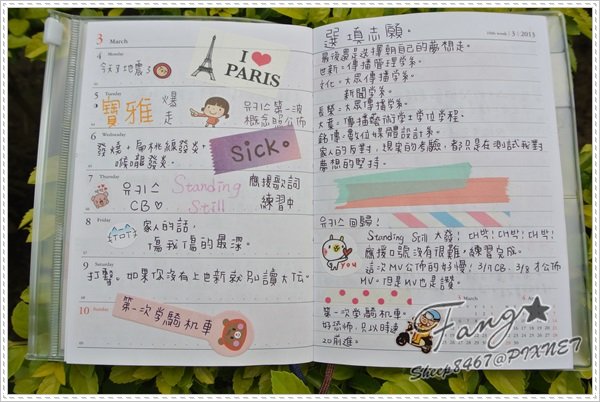 3 March
4 Monday
今天地震了
I ♥
PARIS
5 Tuesday
寶雅 爆走
유키스 第一波
概念照公佈
6 Wednesday
發燒，扁桃腺發炎，
喉嚨發炎。
Sick。
7 Thursday
유키스
CB ♡
Standing
Still
應援歌詞
練習中
8 Friday
家人的話，
傷我傷的最深。
9 Saturday
打擊。如果你沒有上也新就別讀大公。
10 Sunday
第一次學騎機車
10th week 3 / 2013
選填志願。
最後還是選擇朝自己的夢想走。
世新：傳播管理學系。
文化：大眾傳播學系。
新聞學系。
長榮：大眾傳播學系。
大葉：傳播藝術學士學位學程。
銘傳：數位媒體設計系。
家人的反對，現實的考驗，都只是在測試我對
夢想的堅持。
유키스 回歸！
Standing Still 大發！대박！대박！대박！
應援口號沒有很難，練習完成。
這次MV公佈的好慢！3/7 CB. 3/8 才公佈
MV。但是MV也是讚。
YOU
第一次學騎機車。
好恐怖，只以時速
20前進。
3 March
Fang★
Sheep8467@PIXNET